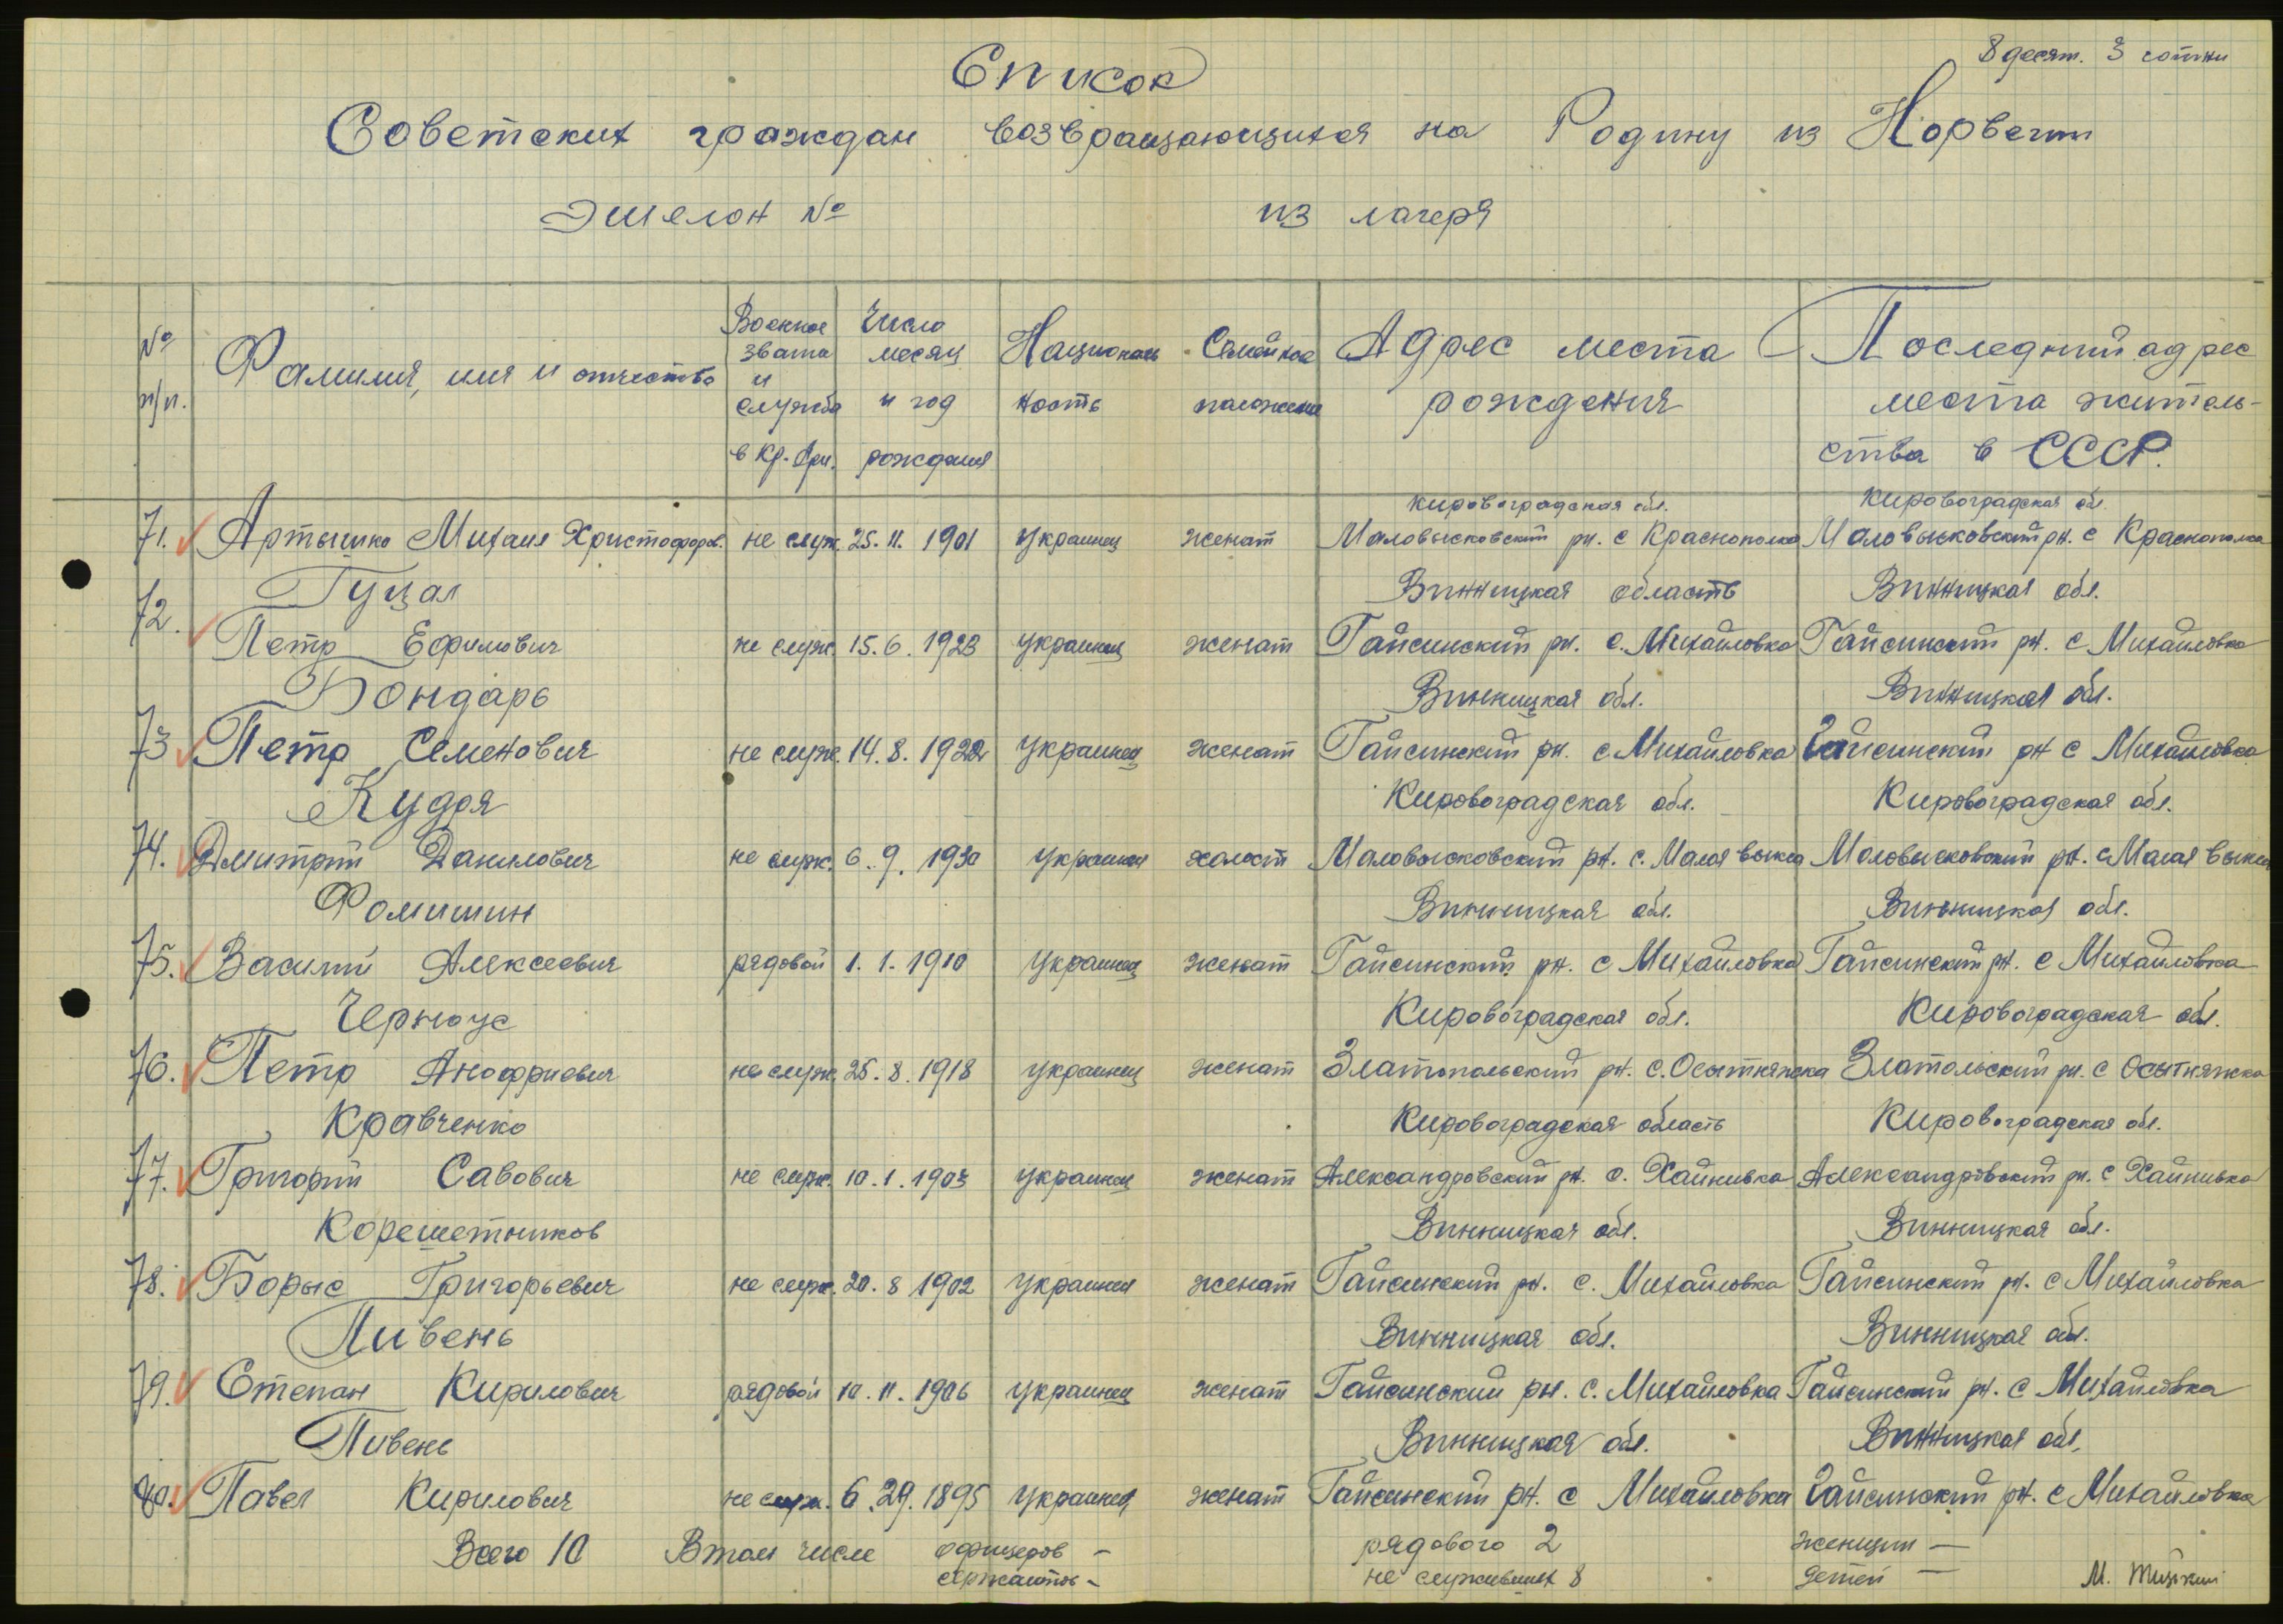 8 десят. 3 сотни
Список
Советских граждан возвращающихся на Родину из Норвегии
Эшелон № из лагеря
№ п/п. Фамилия, имя и отчество Военное звание и служба в Кр. Арм. Число месяц и год рождения Националь ность Семейное положение Адрес места рождения Последний адрес места житель- ства в СССР.
Кировоградская обл. Кировоградская обл.
71. Артышко Михаил Христофоров. не служ. 25. 11. 1901 украинец женат Маловысковский рн. с Краснополка Маловысковский рн. с Краснополка
Гуцал Винницкая область Винницкая обл.
72. Петр Ефимович не служ. 15. 6. 1923 украинец женат Гайсинский рн. с. Михайловка Гайсинский рн. с Михайловка
Бондарь Винницкая обл. Винницкая обл.
73 Петр Семенович не служ. 14. 8. 1922 украинец женат Гайсинский рн. с Михайловка Гайсинский рн с Михайловка
Кудря Кировоградская обл. Кировоградская обл.
74. Дмитрий Данилович не служ. 6. 9. 1930 украинец холост Маловысковский рн. с. Малая Выска Маловысковский рн. с Малая Выска
Фомишин Винницкая обл. Винницкая обл.
75. Василий Алексеевич рядовой 1. 1. 1910 украинец женат Гайсинский рн. с Михайловка Гайсинский рн. с Михайловка
Черноус Кировоградская обл. Кировоградская обл.
76. Петр Анофриевич не служ. 25. 8. 1918 украинец женат Златопольский рн. с. Осытняжка Златольский рн. с Осытняжка
Кравченко Кировоградская область Кировоградская обл.
77. Григорий Савович не служ. 10. 1. 1903 украинец женат Александровский рн. с. Хайнивка Александровский рн. с Хайнивка
Корешетников Винницкая обл. Винницкая обл.
78. Борыс Григорьевич не служ. 20. 8 1902 украинец женат Гайсинский рн. с. Михайловка Гайсинский рн. с Михайловка
Пивень Винницкая обл. Винницкая обл.
79. Степан Кирилович рядовой 10. 11. 1906 украинец женат Гайсинский рн. с. Михайловка Гайсинский рн. с Михайловка
Пивень Винницкая обл. Винницкая обл.
80. Павел Кирилович не служ. 6. 29. 1895 украинец женат Гайсинский рн. с Михайловка Гайсинский рн. с Михайловка
Всего 10 В том числе офицеров – рядового 2 женщин —
сержантов – не служивших 8 детей — М.